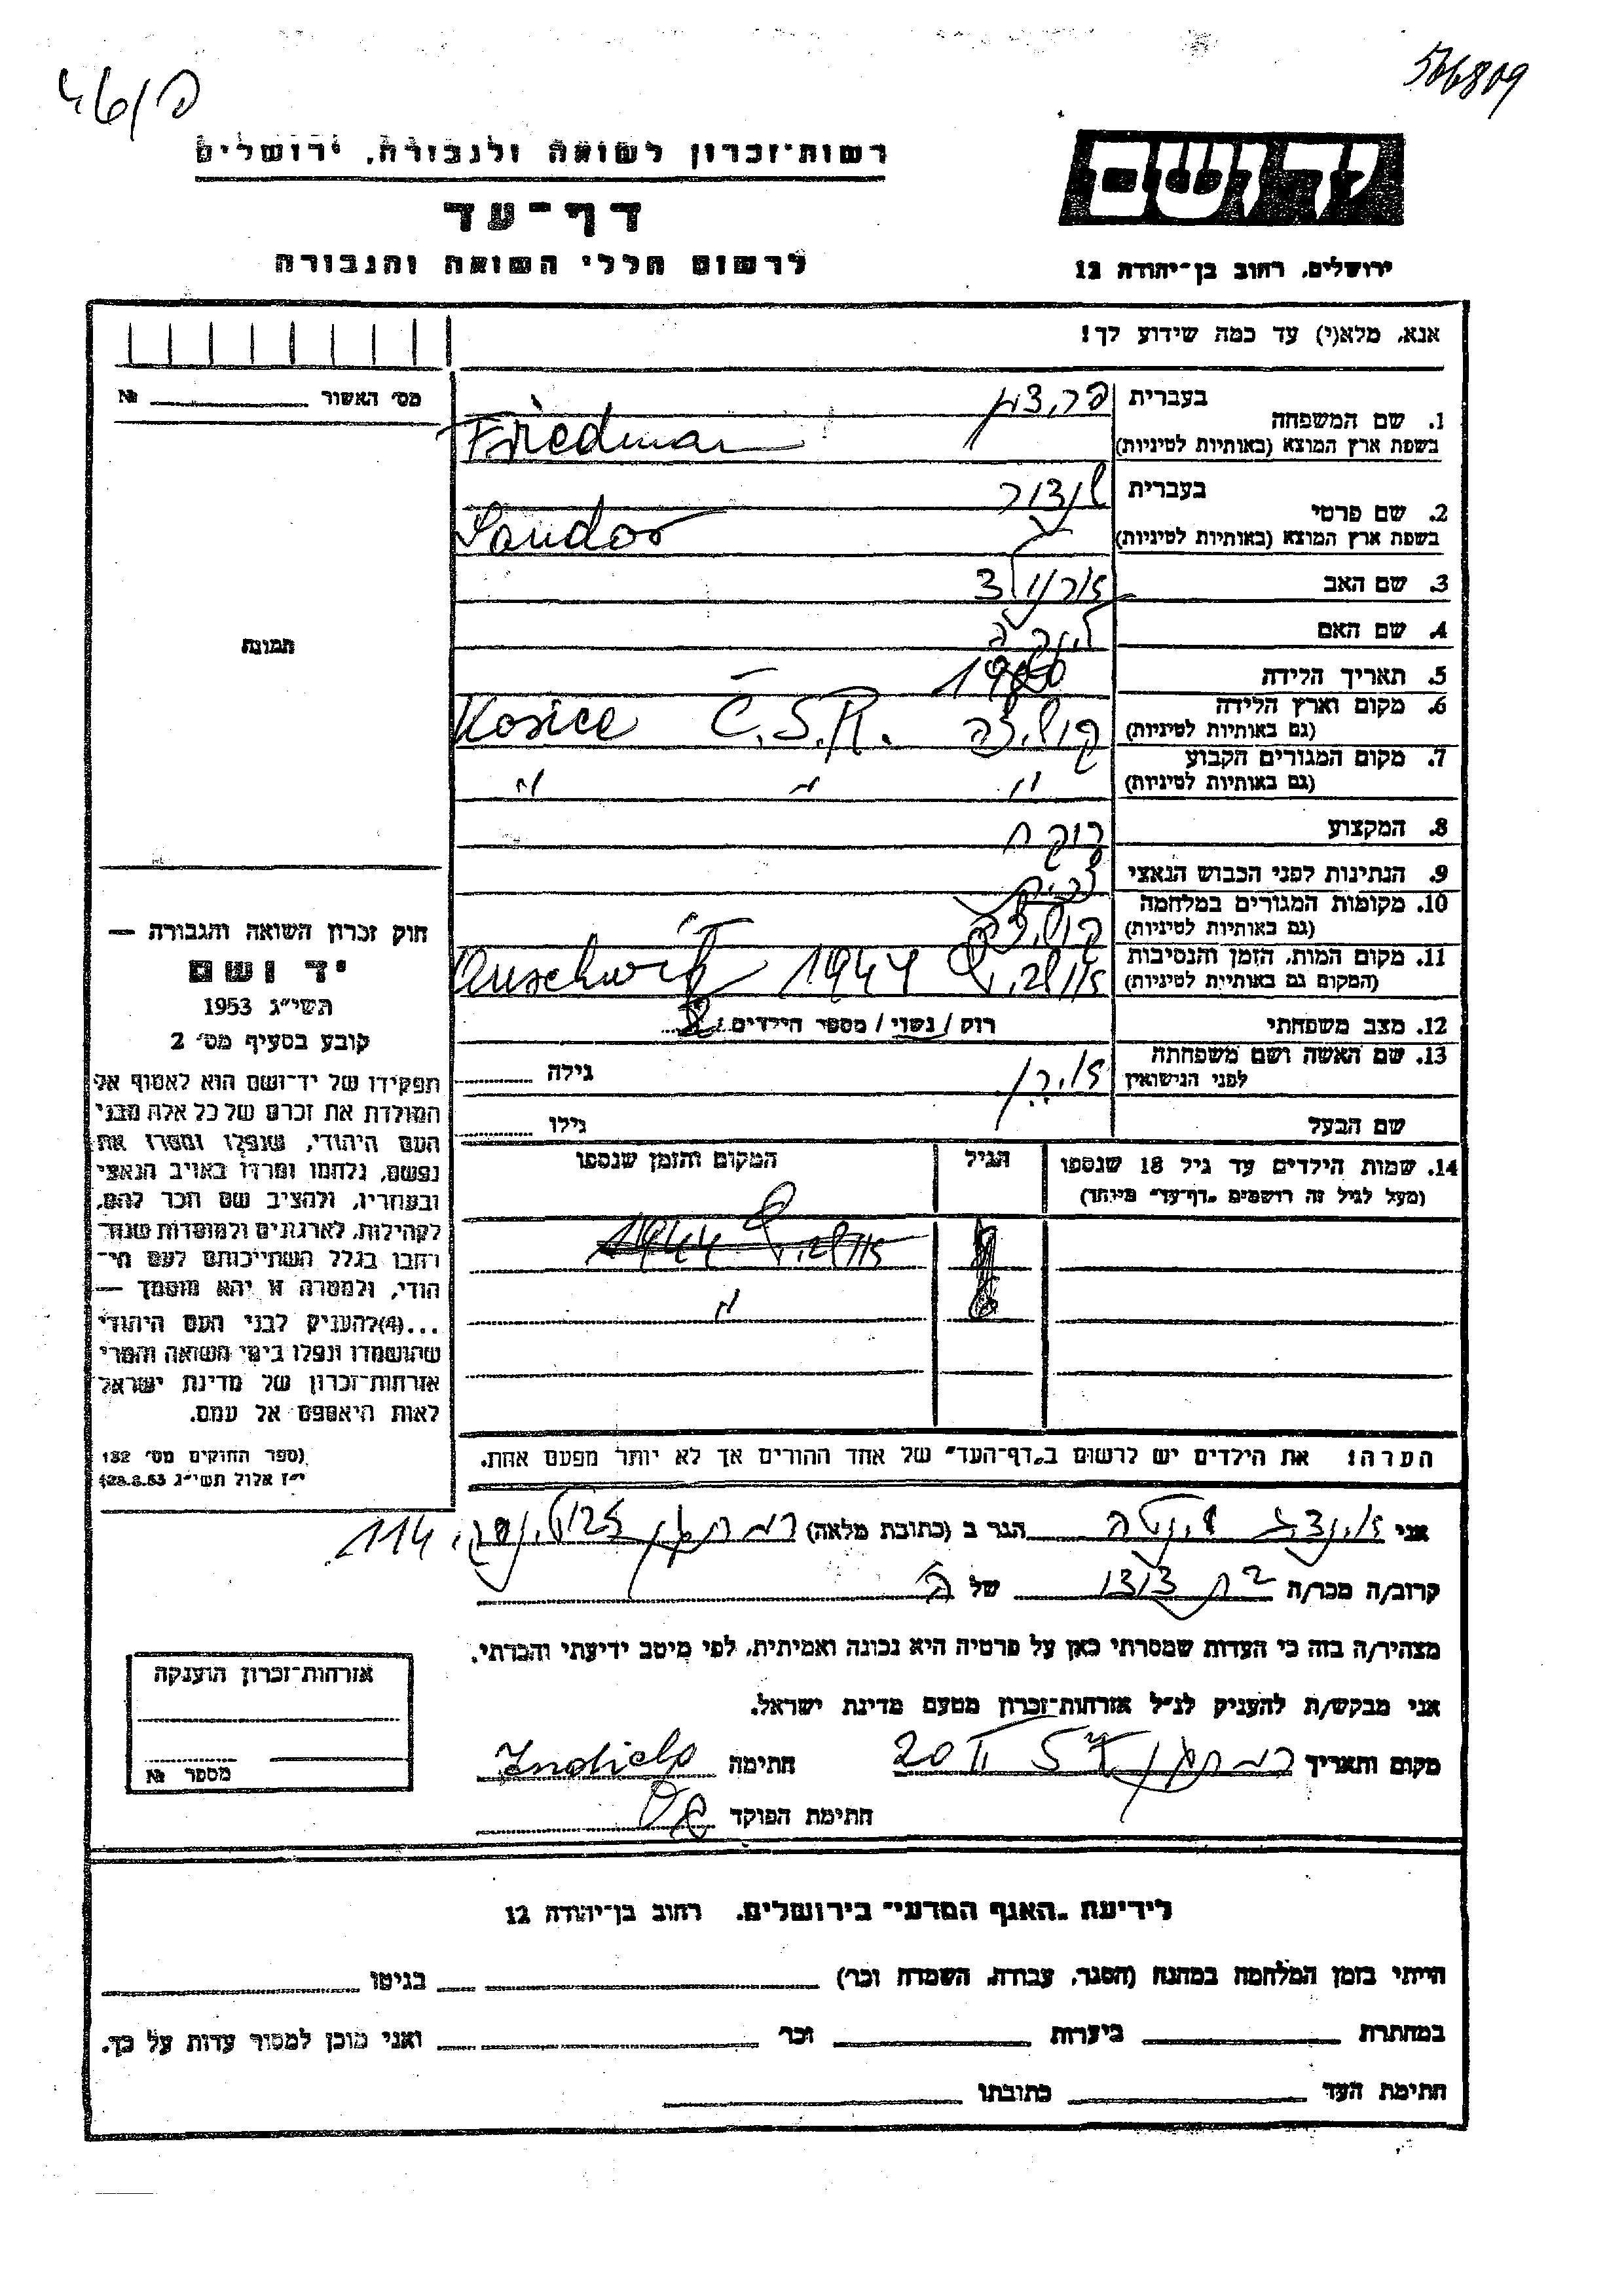 566809
רשות־זכרון לשואה ולגבורה, ירושלים
דף־עד
לרשום חללי השואה והגבורה
יד ושם
ירושלים, רחוב בן־יהודה 12
אנא, מלא(י) עד כמה שידוע לך!
מס׳ האשור № ____
1. שם המשפחה
בעברית פרידמן
בשפת ארץ המוצא (באותיות לטיניות) Friedman
2. שם פרטי
בעברית שנדור
בשפת ארץ המוצא (באותיות לטיניות) Sandor
3. שם האב
4. שם האם
5. תאריך הלידה
6. מקום וארץ הלידה
(גם באותיות לטיניות) קושיצה Č.S.R. Kosice
7. מקום המגורים הקבוע
(גם באותיות לטיניות) " " "
8. המקצוע רוקח
9. הנתינות לפני הכבוש הנאצי
10. מקומות המגורים במלחמה
(גם באותיות לטיניות)
11. מקום המות, הזמן והנסיבות
(המקום גם באותיות לטיניות) אושויץ 1944 Auschwitz
12. מצב משפחתי רוק / נשוי / מספר הילדים
13. שם האשה ושם משפחתה
לפני הנישואין
גילה
שם הבעל
גילו
14. שמות הילדים עד גיל 18 שנספו
(מעל לגיל זה רושמים „דף־עד״ מיוחד)
הגיל
המקום והזמן שנספו
אושויץ 1944
"
הערה: את הילדים יש לרשום ב„דף־העד״ של אחד ההורים אך לא יותר מפעם אחת.
תמונה
חוק זכרון השואה והגבורה —
יד ושם
תשי״ג 1953
קובע בסעיף מס׳ 2
תפקידו של יד־ושם הוא לאסוף אל
המולדת את זכרם של כל אלה מבני
העם היהודי, שנפלו ומסרו את
נפשם, נלחמו ומרדו באויב הנאצי
ובעוזריו, ולהציב שם וזכר להם,
לקהילות, לארגונים ולמוסדות שנחר־
רחבו בגלל השתייכותם לעם הי־
הודי, ולמטרה זו יהא מוסמך —
...(4)להעניק לבני העם היהודי
שהושמדו ונפלו בימי השואה והמרי
אזרחות־זכרון של מדינת ישראל
לאות היאספם אל עמם.
(ספר החוקים מס׳ 132
י״ז אלול תשי״ג 28.8.53)
אני הגר ב (כתובת מלאה) רמת גן 114
קרוב/ה מכר/ה בת דוד של הנ״ל
מצהיר/ה בזה כי העדות שמסרתי כאן על פרטיה היא נכונה ואמיתית, לפי מיטב ידיעתי והכרתי.
אני מבקש/ת להעניק לנ״ל אזרחות־זכרון מטעם מדינת ישראל.
מקום ותאריך רמת גן 20 II 57 חתימה
חתימת הפוקד
אזרחות־זכרון הוענקה
מספר №
לידיעת „האגף המדעי״ בירושלים, רחוב בן־יהודה 12
הייתי בזמן המלחמה במחנה (הסגר, עבודה, השמדה וכר׳) ____ בגיטו ____
במחתרת ____ ביערות ____ וכר ____ ואני מוכן למסור עדות על כך.
חתימת העד ____ כתובתו ____